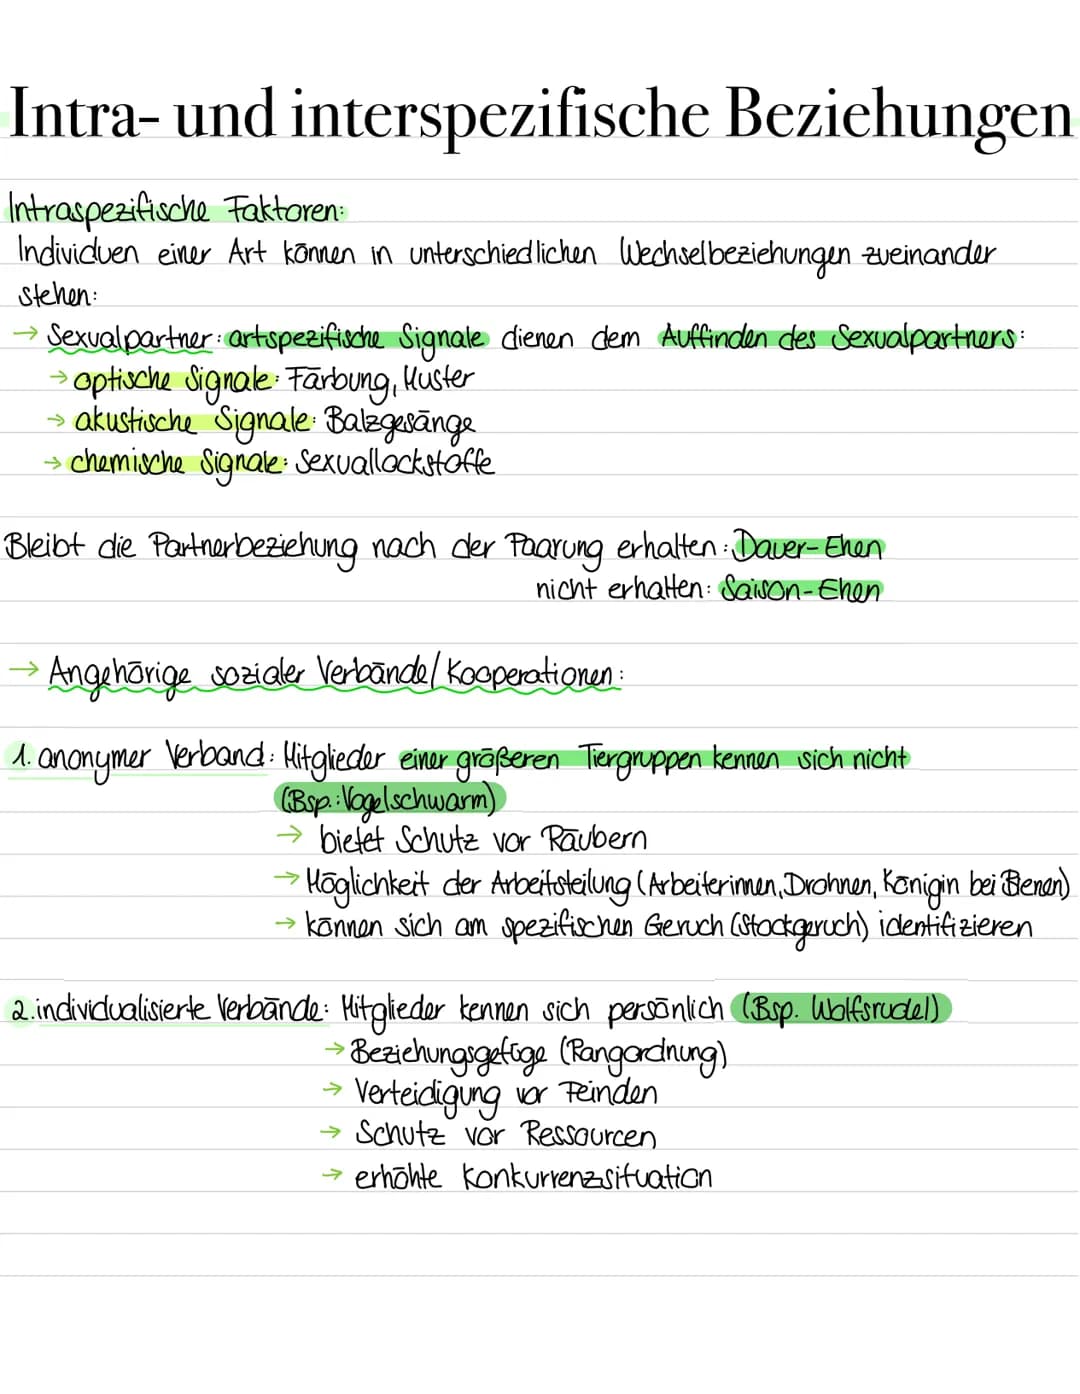 Intra- und interspezifische Beziehungen
Intraspezifische Faktoren:
Individuen einer Art können in unterschiedlichen Wechselbeziehungen zueinander
stehen:
→ Sexualpartner: artspezifische Signale dienen dem Auffinden des Sexualpartners:
→ optische Signale: Färbung, Muster
→ akustische Signale: Balzgesänge
→ chemische Signale: Sexuallockstoffe
Bleibt die Partnerbeziehung nach der Paarung erhalten: Dauer-Ehen
nicht erhalten: Saison-Ehen
→ Angehörige sozialer Verbände/Kooperationen:
1. anonymer Verband: Mitglieder einer größeren Tiergruppen kennen sich nicht
(Bsp.: Vogelschwarm)
→ bietet Schutz vor Räubern
→ Möglichkeit der Arbeitsteilung (Arbeiterinnen, Drohnen, Königin bei Bienen)
→ können sich am spezifischen Geruch (Stockgeruch) identifizieren
2. individualisierte Verbände: Mitglieder kennen sich persönlich (Bsp. Wolfsrudel)
→ Beziehungsgefüge (Rangordnung)
→ Verteidigung vor Feinden
→ Schutz vor Ressourcen
→ erhöhte Konkurrenzsituation